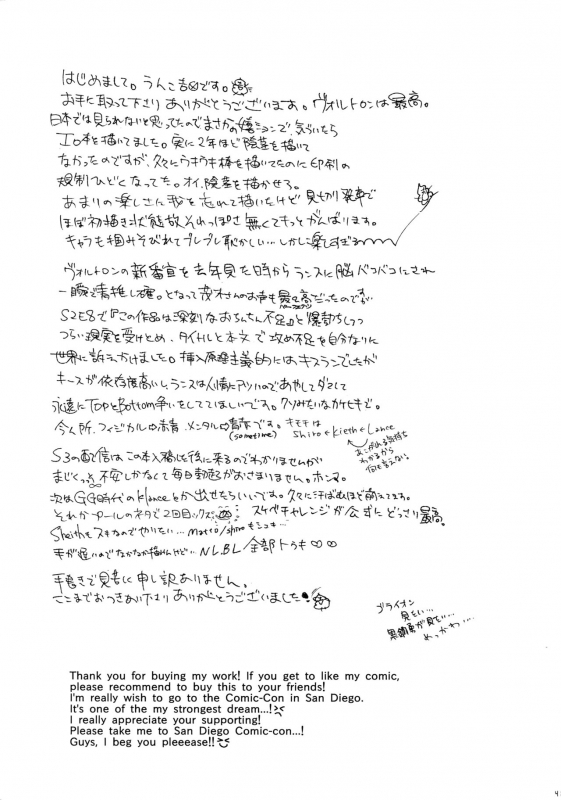 はじめまして。うんこ吉です。
お手に取って下さり ありがとうございます。ヴォルトロンは最高。
日本では見られないと思ってたのでまさかの で、気づいたら
エロ本を描いてました。実に2年ほど陰茎を描いて
なかったのですが、久々にウキウキ棒を描いてたのに印刷の
規制ひどくなってた。オイ、陰茎を描かせろ。
あまりの楽しさに我を忘れて描いたけど 見切り発車で
ほぼ初描き状態故 それっぽさ無くてもっとがんばります。
キャラも掴みそびれてプルプル恥かしい… しかし楽しすぎる
ヴォルトロンの新 を去年見た時から ランスに脳バコバコにされ
一瞬で青推し確。となって茂木さんのお声も最&高だったのですが
S2E8で『この作品は深刻なおちんちん不足』と爆 しつつ
つらい現実を受けとめ、タイトルと本文で攻め不足を自分なりに
世界に訴えかけました。挿入原理主義的には、キスランでしたが
キースが依存度高いし、ランスは人情にアツいのであやしてダメにして
永遠にTopとBottom争いをしてほしいです。クソみたいなカケヒキで。
今ん所、フィジカル 赤青、メンタル 青赤です。
(sometime)
キモチは
shiro←kieth←Lance
あこがれる気持ち
わかるから
何も言えない
S3の配信は この本入稿した後に来るのでわかりませんが
まじくっそ不安しかなくて毎日動悸がおさまりません。ホンマ。
次は GG時代のklanceとか出せたらいいです。久々に汗ばむほど萌えてます。
それかプールのネタで2回目ックス スケベチャレンジが公式にどっさり 最高。
Sheithもスキなのでやりたい… matto/shiroもシコ…
手が遅いのでなかなか描けんけど… NL.BL 全部トゥキ ∞∞
手書きで見苦に申し訳ありません。
ここまでおつきあい下さり ありがとうございました!
ゴライオン
見たい…
黒 が見たい…
めっかわ…
Thank you for buying my work! If you get to like my comic,
please recommend to buy this to your friends!
I'm really wish to go to the Comic-Con in San Diego.
It's one of the my strongest dream...!
I really appreciate your supporting!
Please take me to San Diego Comic-con...!
Guys, I beg you pleeease!!
4